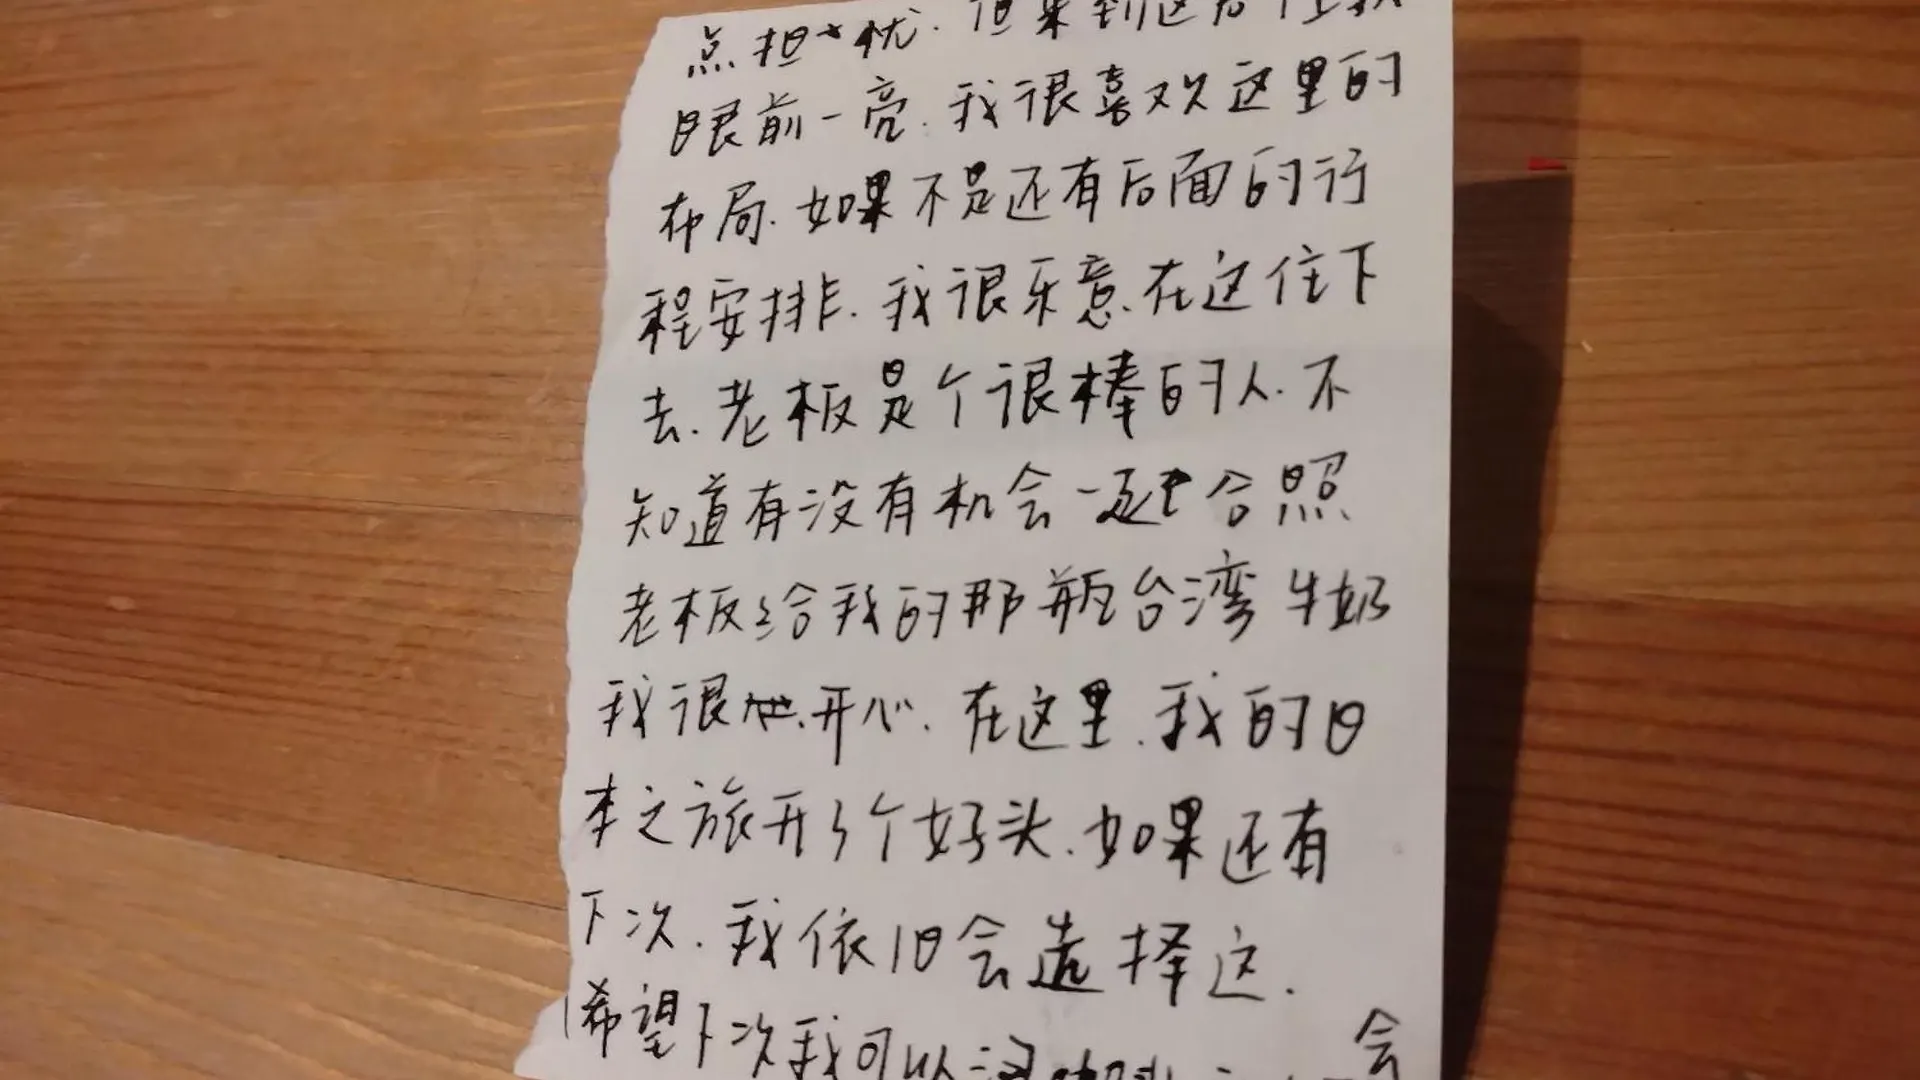 点担忧.但来到这后让我
眼前一亮.我很喜欢这里的
布局.如果不是还有后面的行
程安排.我很乐意.在这住下
去.老板是个很棒的人.不
知道有没有机会一起合照
老板给我的那瓶台湾牛奶
我很 开心.在这里.我的日
本之旅开了个好头.如果还有
下次.我依旧会选择这.
(希望下次我可以 会